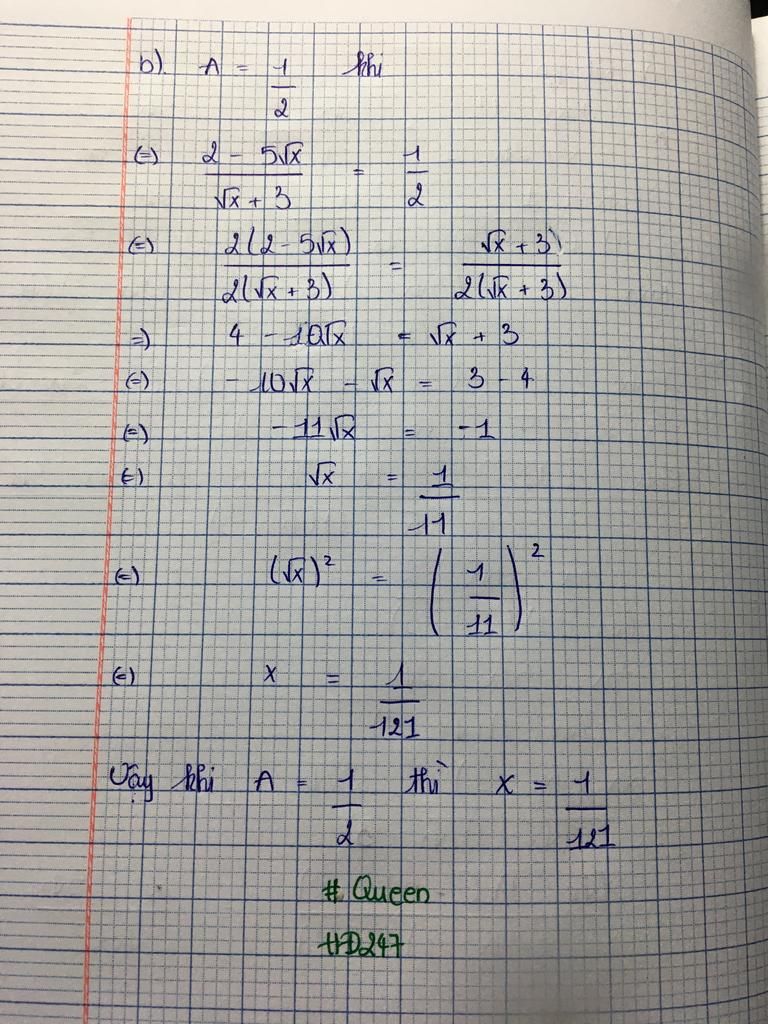 b). A = 1/2 khi
(=) (2 - 5√x)/(√x + 3) = 1/2
(=) 2(2 - 5√x)/2(√x + 3) = √x + 3)/2(√x + 3)
=) 4 - 10√x = √x + 3
(=) - 10√x - √x = 3 - 4
(=) - 11√x = -1
(=) √x = 1/11
(=) (√x)² = (1/11)²
(=) x = 1/121
Vậy khi A = 1/2 thì x = 1/121
# Queen
HD247